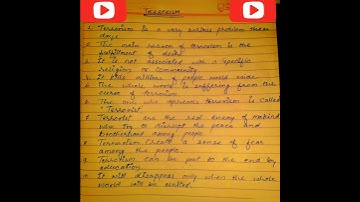 Terrorism
1. Terrorism is a very serious problem these
days
2. The main reason of terrorism is the
fulfillment of
3. It is not associated with a specific
religion or community
4. It kills millions of people world wide
5. The whole world is suffering from the
curse of terrorism
6. The one who spreads terrorism is called
"Terrorist"
7. Terrorist are the real enemy of mankind
who try to disrupt the peace and
Brotherhood among people
8. Terrorism create a sense of fear
among the people.
9. Terrorism can be put to the end by
education
10. It will disappear only when the whole
world will be